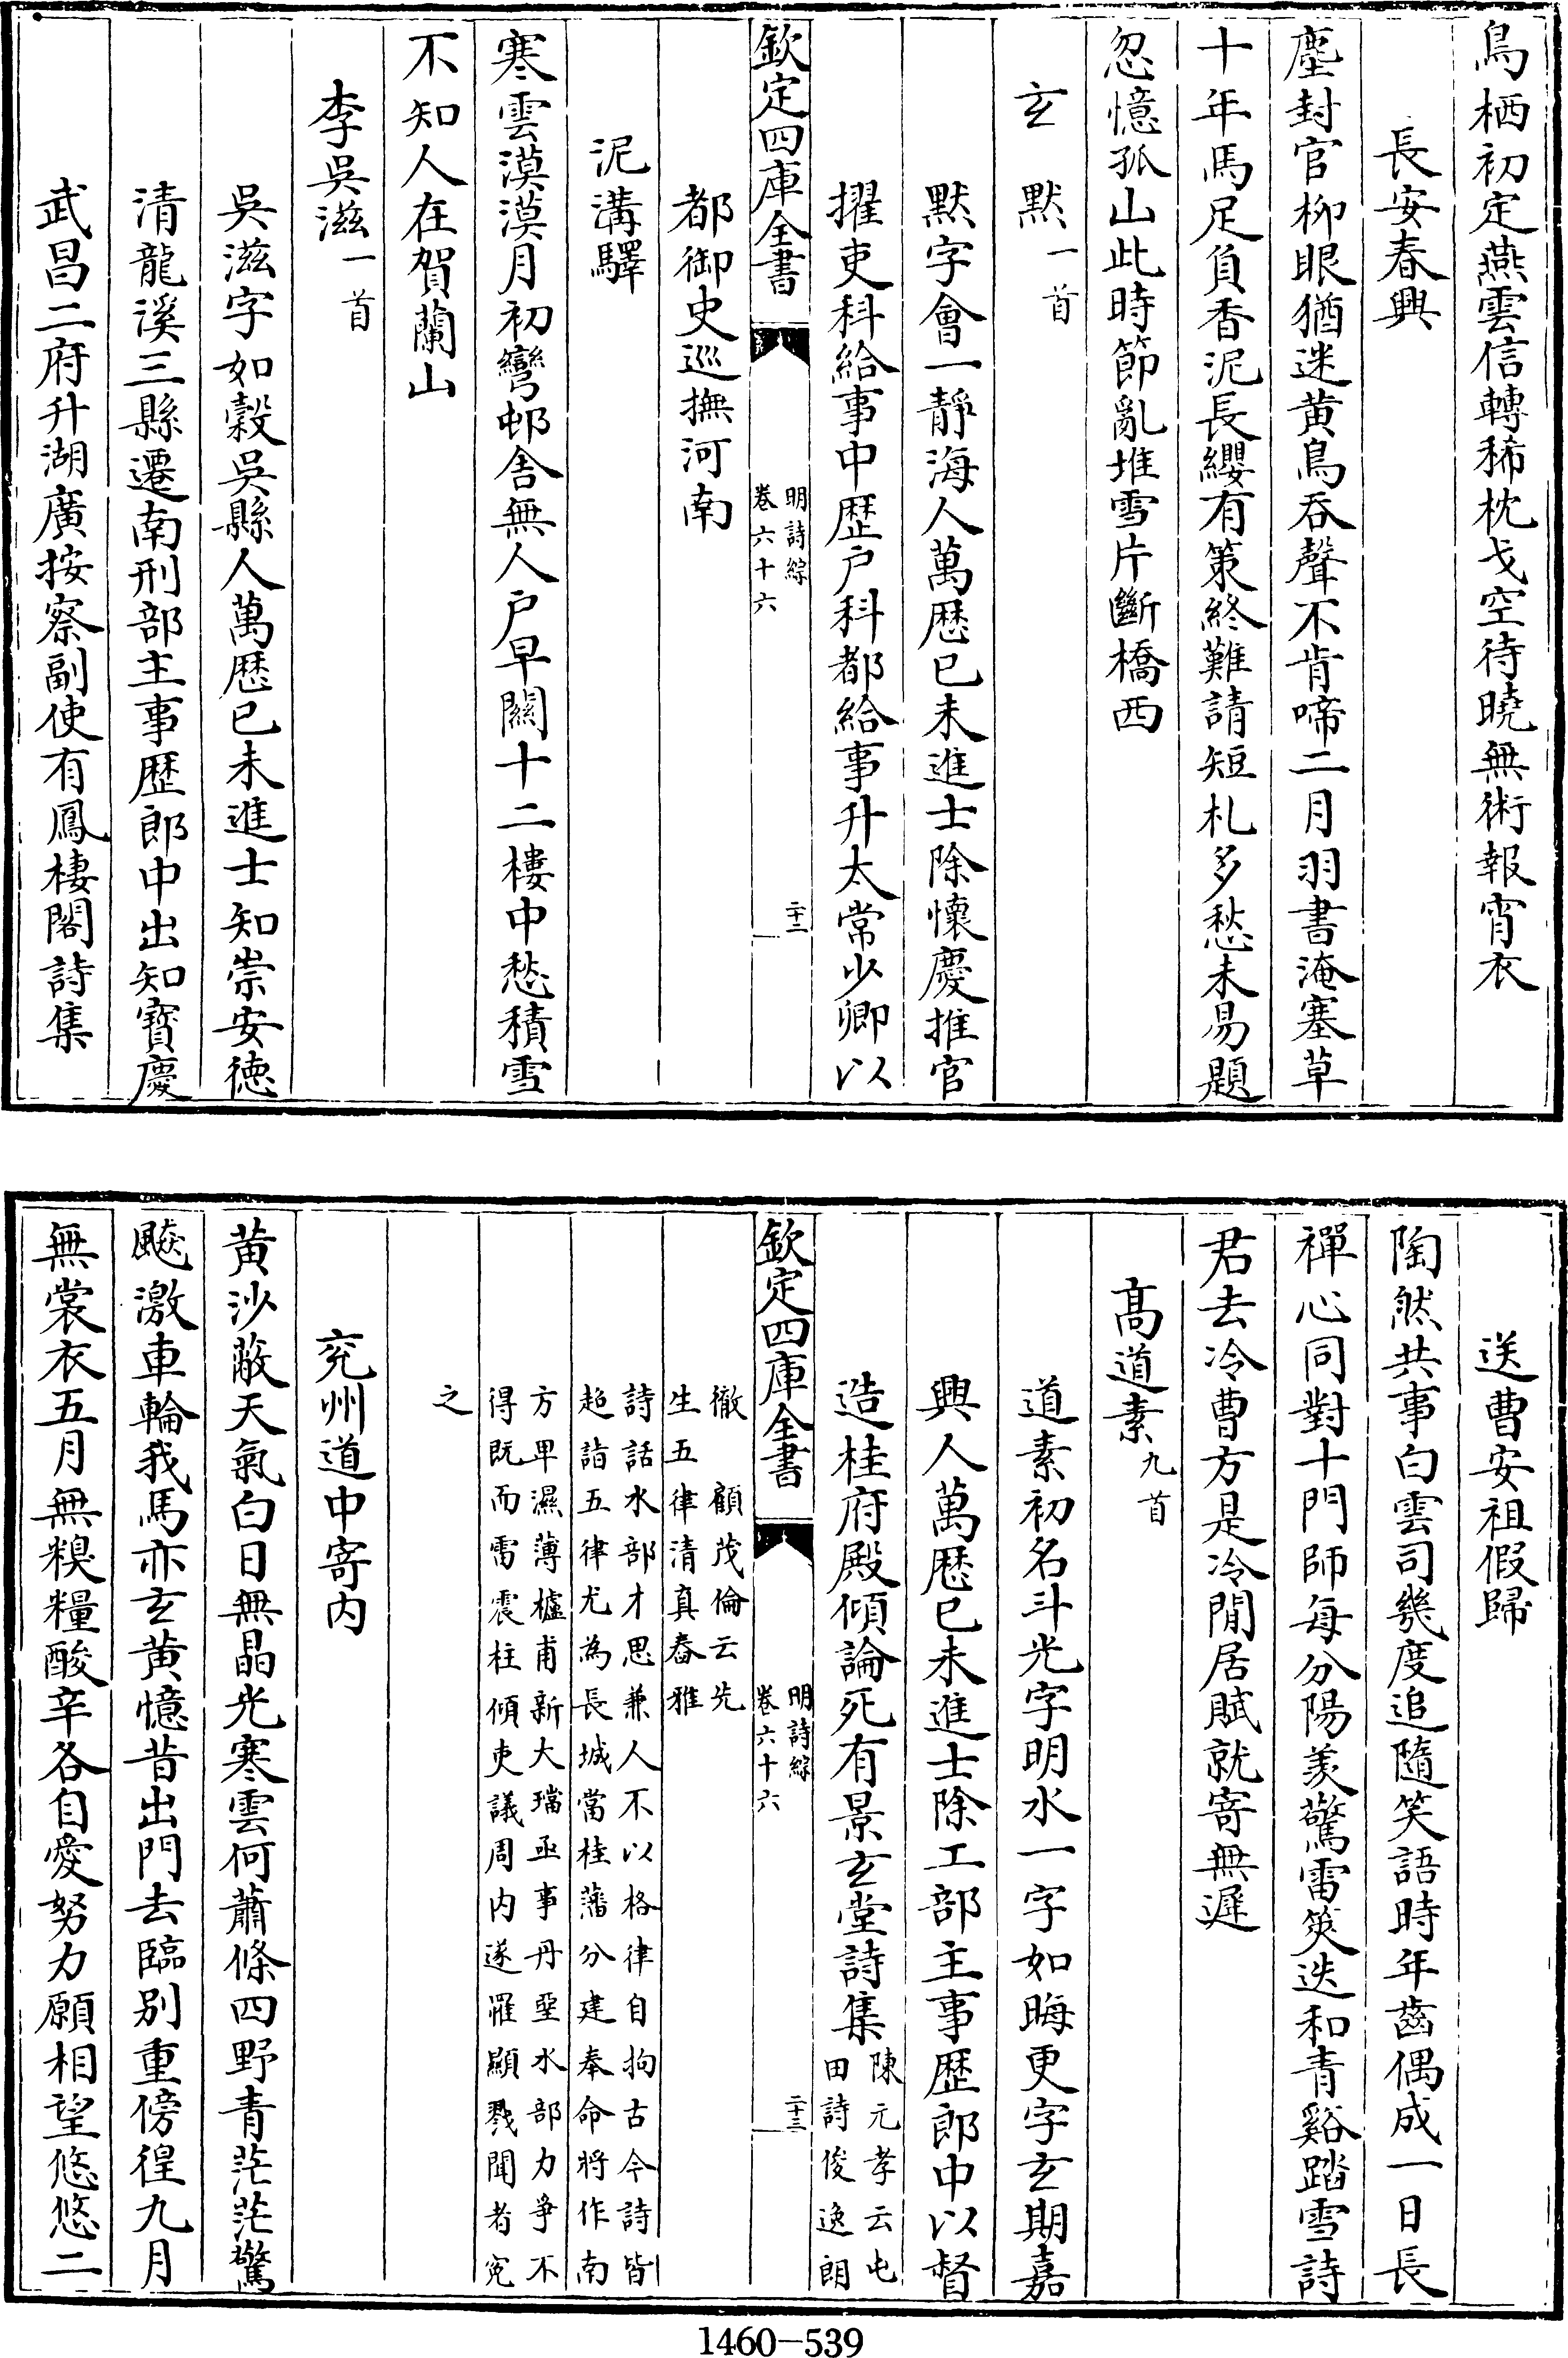 鳥栖初定燕雲信轉稀枕戈空待曉無術報宵衣
長安春興
塵封官柳眼猶迷黃鳥吞聲不肯啼二月羽書淹塞草
十年馬足負香泥長纓有策終難請短札多愁未易題
忽憶孤山此時節亂堆雪片斷橋西
玄默一首
默字會一靜海人萬歷己未進士除懷慶推官
擢吏科給事中歷戶科都給事升太常少卿以
欽定四庫全書
明詩綜
卷六十六
二十二
都御史巡撫河南
泥溝驛
寒雲漠漠月初彎邨舍無人戶早關十二樓中愁積雪
不知人在賀蘭山
李吳滋一首
吳滋字如穀吳縣人萬歷己未進士知崇安德
清龍溪三縣遷南刑部主事歷郎中出知寶慶
武昌二府升湖廣按察副使有鳳棲閣詩集
送曹安祖假歸
陶然共事白雲司幾度追隨笑語時年齒偶成一日長
禪心同對十門師每分陽羨驚雷筴迭和青谿踏雪詩
君去冷曹方是冷閒居賦就寄無遲
高道素九首
道素初名斗光字明水一字如晦更字玄期嘉
興人萬歷己未進士除工部主事歷郎中以督
造桂府殿傾論死有景玄堂詩集
陳元孝云屯
田詩俊逸朗
欽定四庫全書
明詩綜
卷六十六
二十三
徹　顧茂倫云先
生五律清真舂雅
詩話水部才思兼人不以格律自拘古今詩皆
超詣五律尤為長城當桂藩分建奉命將作南
方卑濕薄櫨甫新大璫亟事丹堊水部力爭不
得既而雷震柱傾吏議周內遂罹顯戮聞者寃
之
兖州道中寄內
黃沙蔽天氣白日無晶光寒雲何蕭條四野青茫茫驚
飈激車輪我馬亦玄黃憶昔出門去臨別重傍徨九月
無裳衣五月無糗糧酸辛各自愛努力願相望悠悠二
1460-539